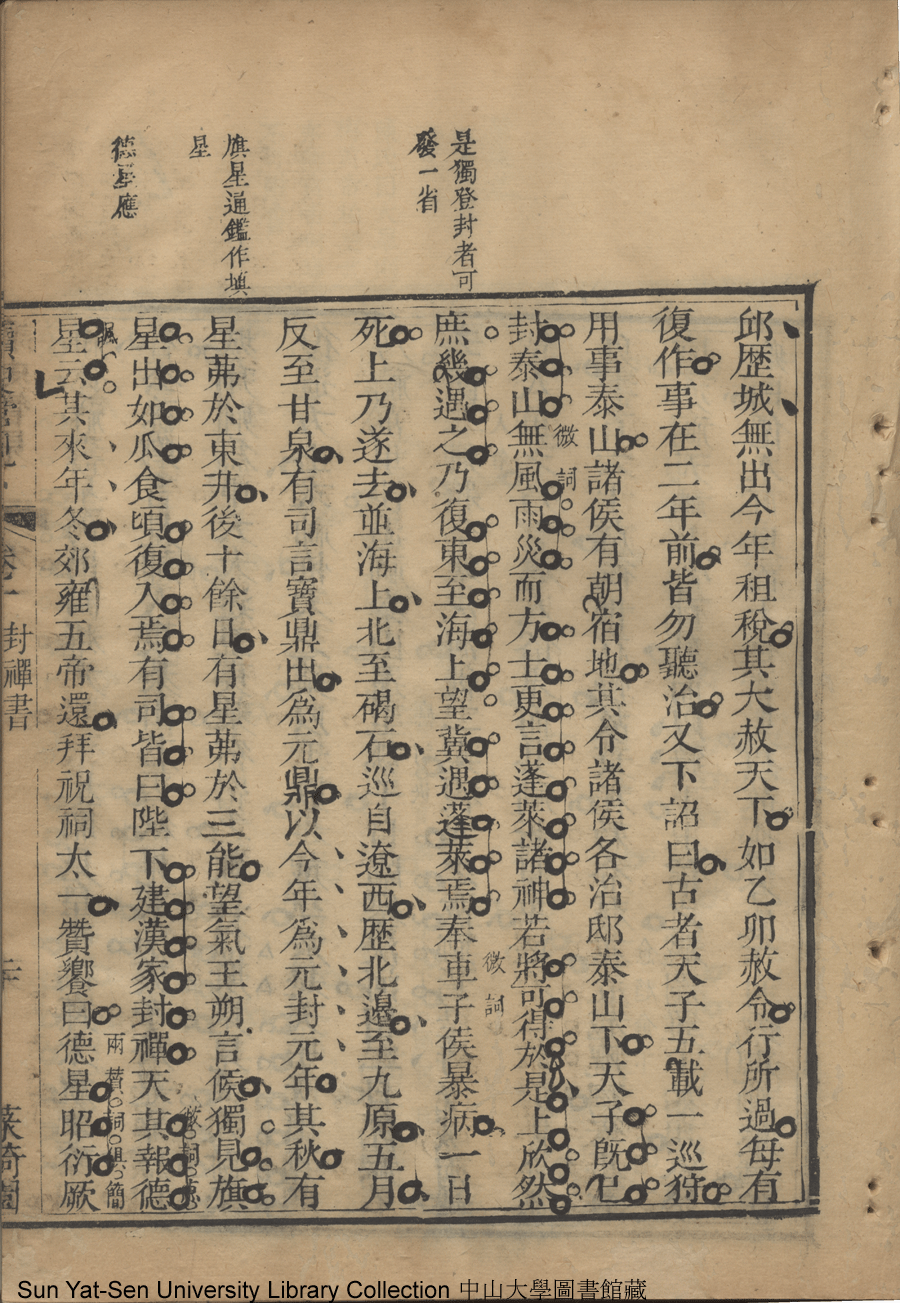 是獨登封者可
發一省
旗星通鑑作塡
星
德星應
邱歷城無出今年租稅其大赦天下如乙卯赦令行所過毋有
復作事在二年前皆勿聽治又下詔曰古者天子五載一巡狩
用事泰山諸侯有朝宿地其令諸侯各治邸泰山下天子旣已
封泰山無風雨災而方士更言蓬萊諸神若將可得於是上欣然
微詞
庶幾遇之乃復東至海上望冀遇蓬萊焉奉車子侯暴病一日
微詞
死上乃遂去並海上北至碣石巡自遼西歷北邊至九原五月
反至甘泉有司言寶鼎出爲元鼎以今年爲元封元年其秋有
星茀於東井後十餘日有星茀於三能望氣王朔言候獨見旗
星出如瓜食頃復入焉有司皆曰陛下建漢家封禪天其報德
星云其來年冬郊雍五帝還拜祝祠太一贊饗曰德星昭衍厥
兩贊詞俱簡
封禪書
Sun Yat-Sen University Library Collection 中山大學圖書館藏